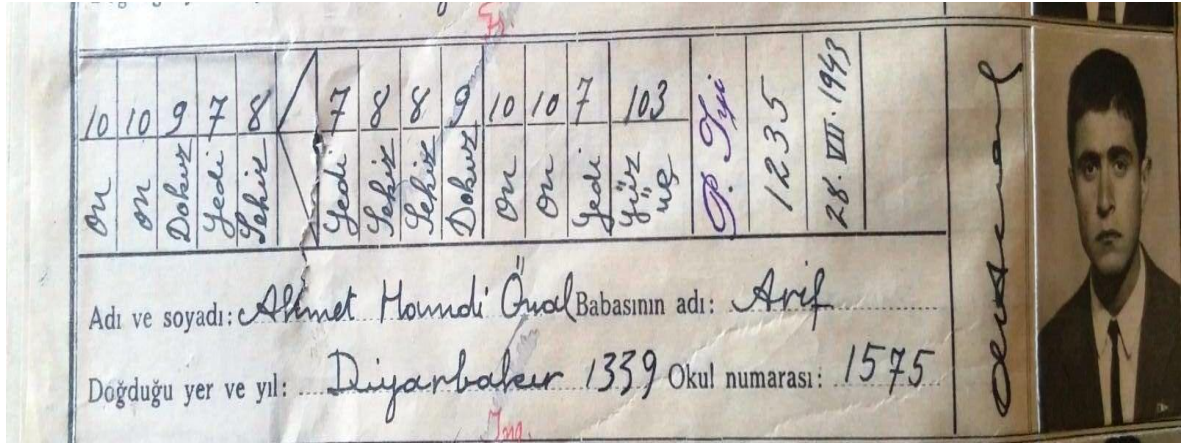 10 10 9 7 8 7 8 8 9 10 10 7 103
On On Dokuz Yedi Sekiz Yedi Sekiz Sekiz Dokuz On On Yedi Yüz üç P. İyi 1235 28.VII.1943
Adı ve soyadı: Ahmet Hamdi Ünal Babasının adı: Arif
Doğduğu yer ve yıl: Diyarbakır 1339 Okul numarası: 1575
İng.